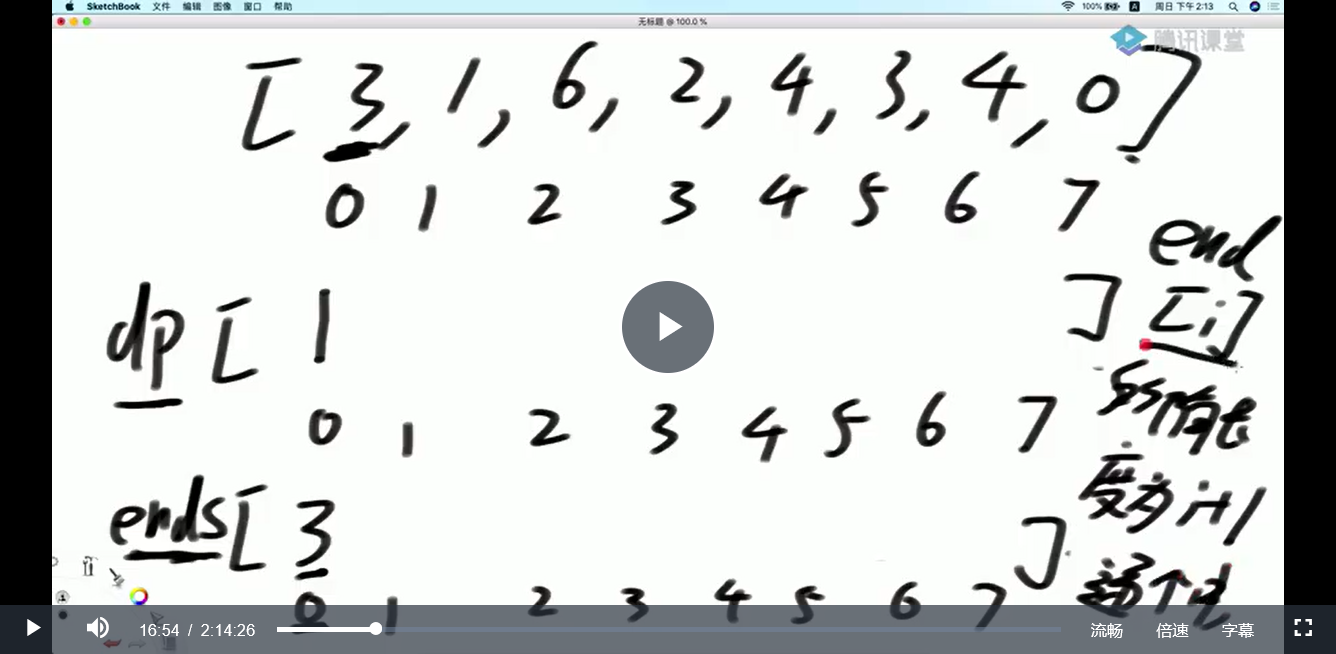 SketchBook 文件 编辑 图像 窗口 帮助 100% 周日 下午2:13
无标题 @ 100.0 %
腾讯课堂
[ 3, 1, 6, 2, 4, 3, 4, 0 ]
0 1 2 3 4 5 6 7
end
dp [ 1 ] [i]
所有长
0 1 2 3 4 5 6 7
度为 i+1
ends [ 3 ]
0 1 2 3 4 5 6 7
16:54 / 2:14:26 流畅 倍速 字幕